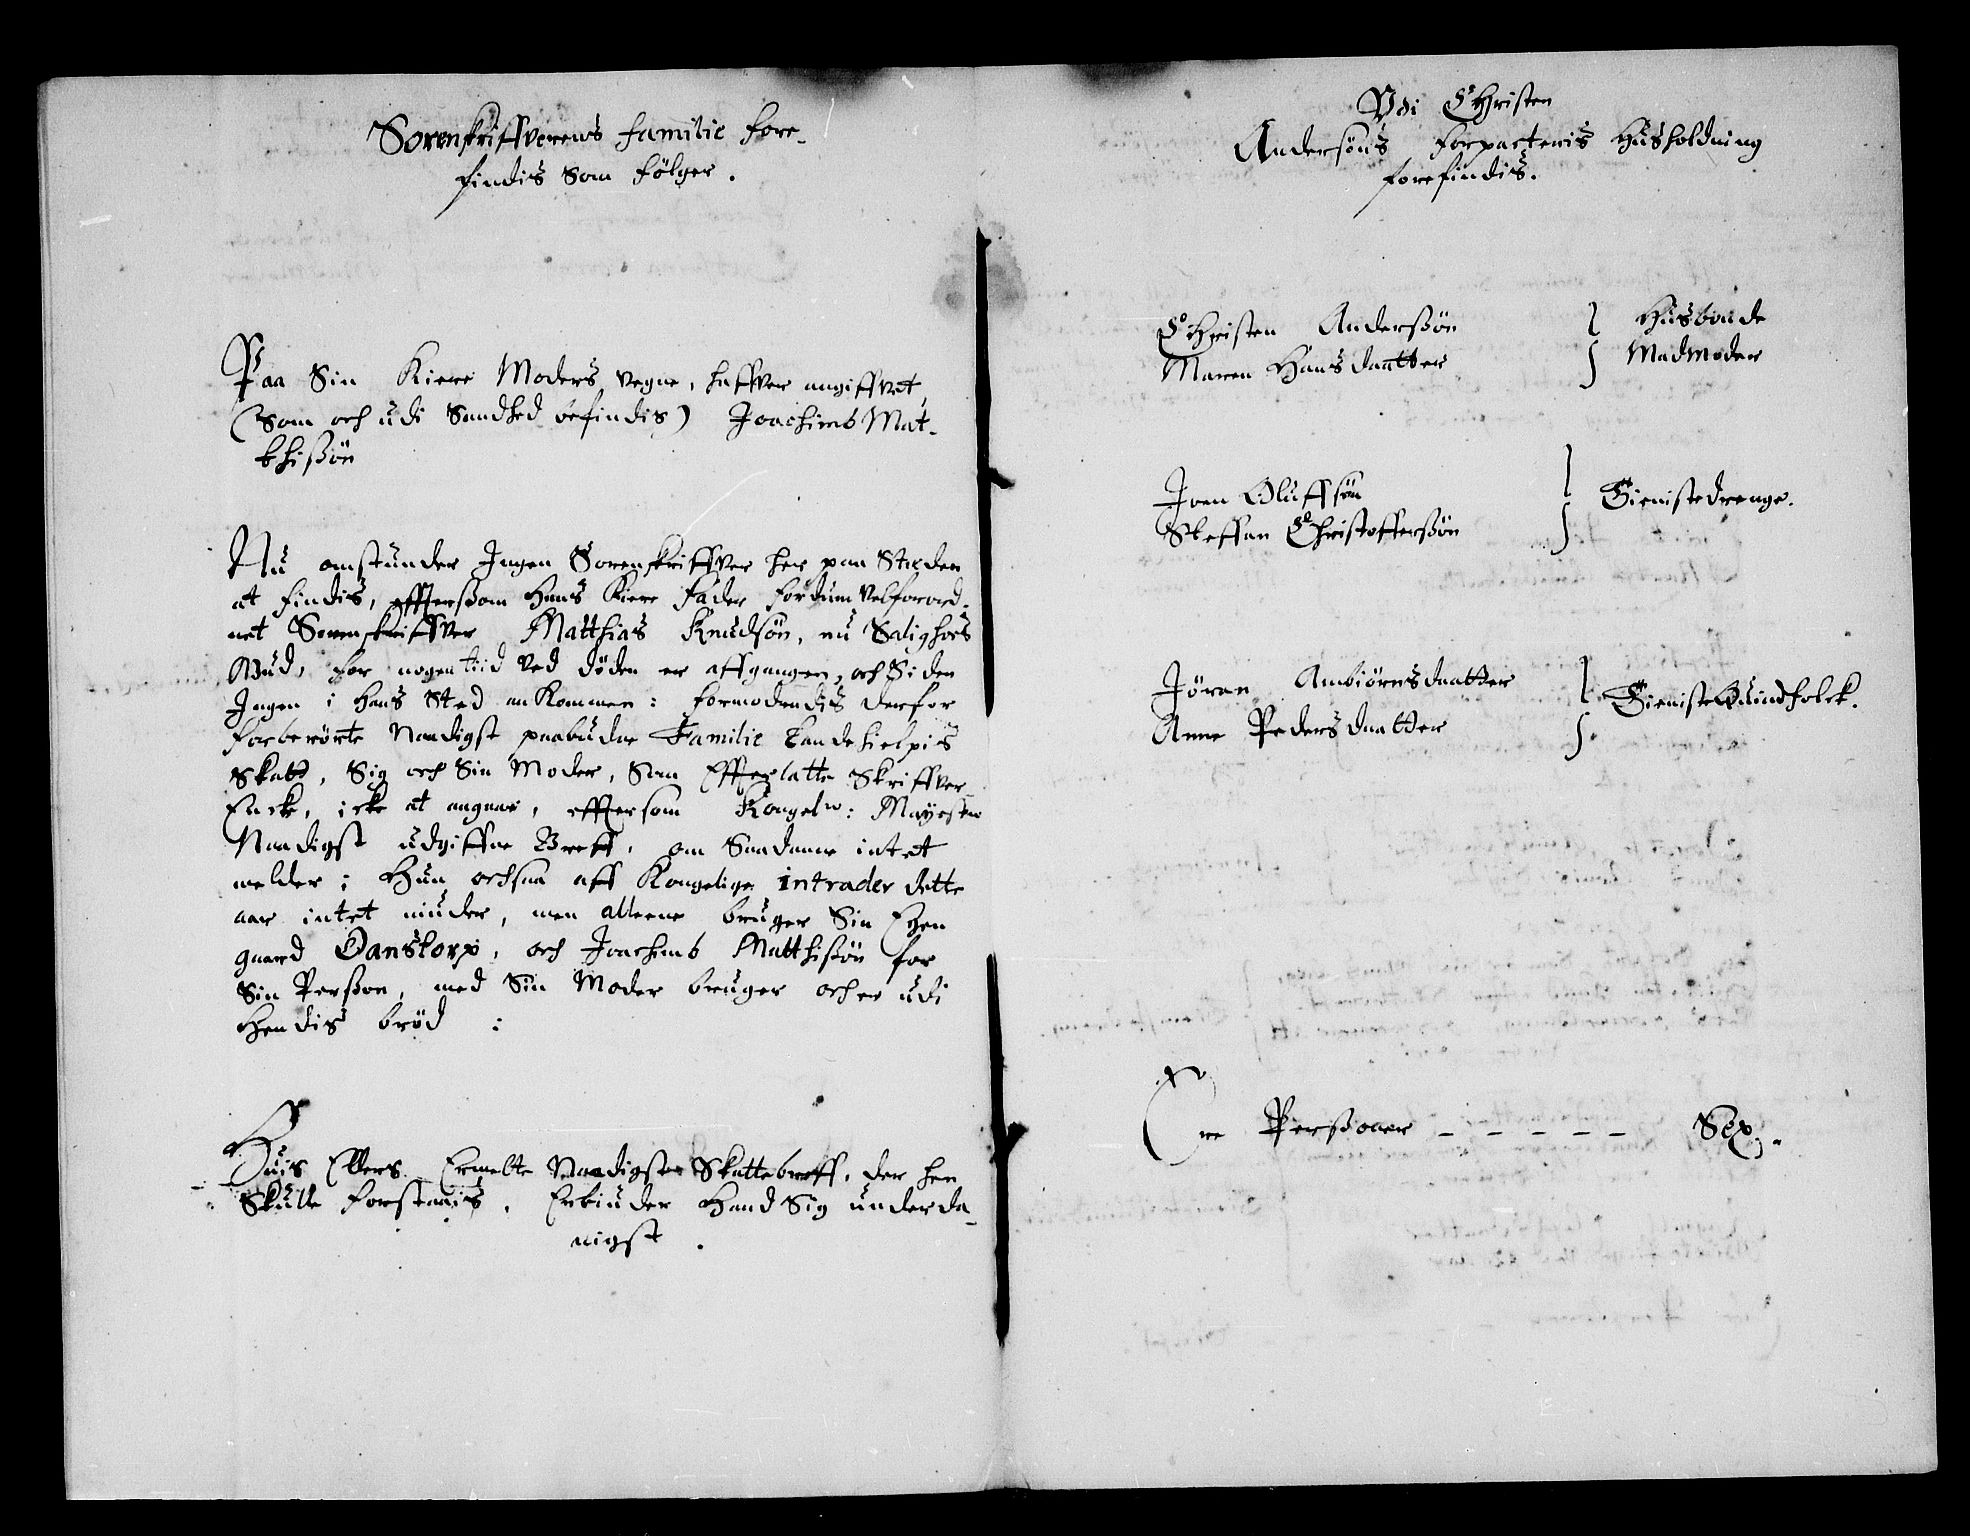 Sorenskriffverens familie fore-
findis som følger.
Paa Sin Kiere Moders vegne, haffver angiffvet,
(som och udi Sandhed befindis) Joachimb Mat-
thißøn
Nu omstunder Ingen Sorenskriffver her paa Steden
at findis, effterßom Hans Kiere Fader fordum velforord-
net Sorenskriffver Matthias Knudsøn, nu Salig hos
Gud, for nogen tiid ved døden er affgangen, och Siden
Ingen i Hans Sted ankommen: formodendis derfor
forberørte Naadigst paabudne Familie Landehielpis
Skatt, Sig och Sin Moder, som Effterlatte Skriffver-
Encke, icke at angaae, efftersom Kongelig: Mayesten
Naadigst udgiffne Breff, om Saadanne intet
melder; Hun ochsaa aff Kongelige intrader dette
aar intet niuder, men alleene bruger Sin Egen
gaard Danstorp, och Joachimb Matthißøn for
Sin Perßon, med Sin Moder bruger och er udi
Hendis brød :
Huis Ellers Ermelte Naadigste Skattebreff, der hen
Skulle forstaais, Erbiuder Hand Sig underda-
nigst.
Vdi Christen
Andersøns Forpacteris Husholdning
forefindis.
Christen Anderßøn } Husbonde
Maren Hansdaatter } Madmoder
Iven Oluffsøn } Tienistedrenge.
Steffan Christofferßøn
Jøran Ambiørnsdaatter } TienisteQuindfolck.
Anne Pedersdaatter
Ere Perßoner - - - - - Sex.